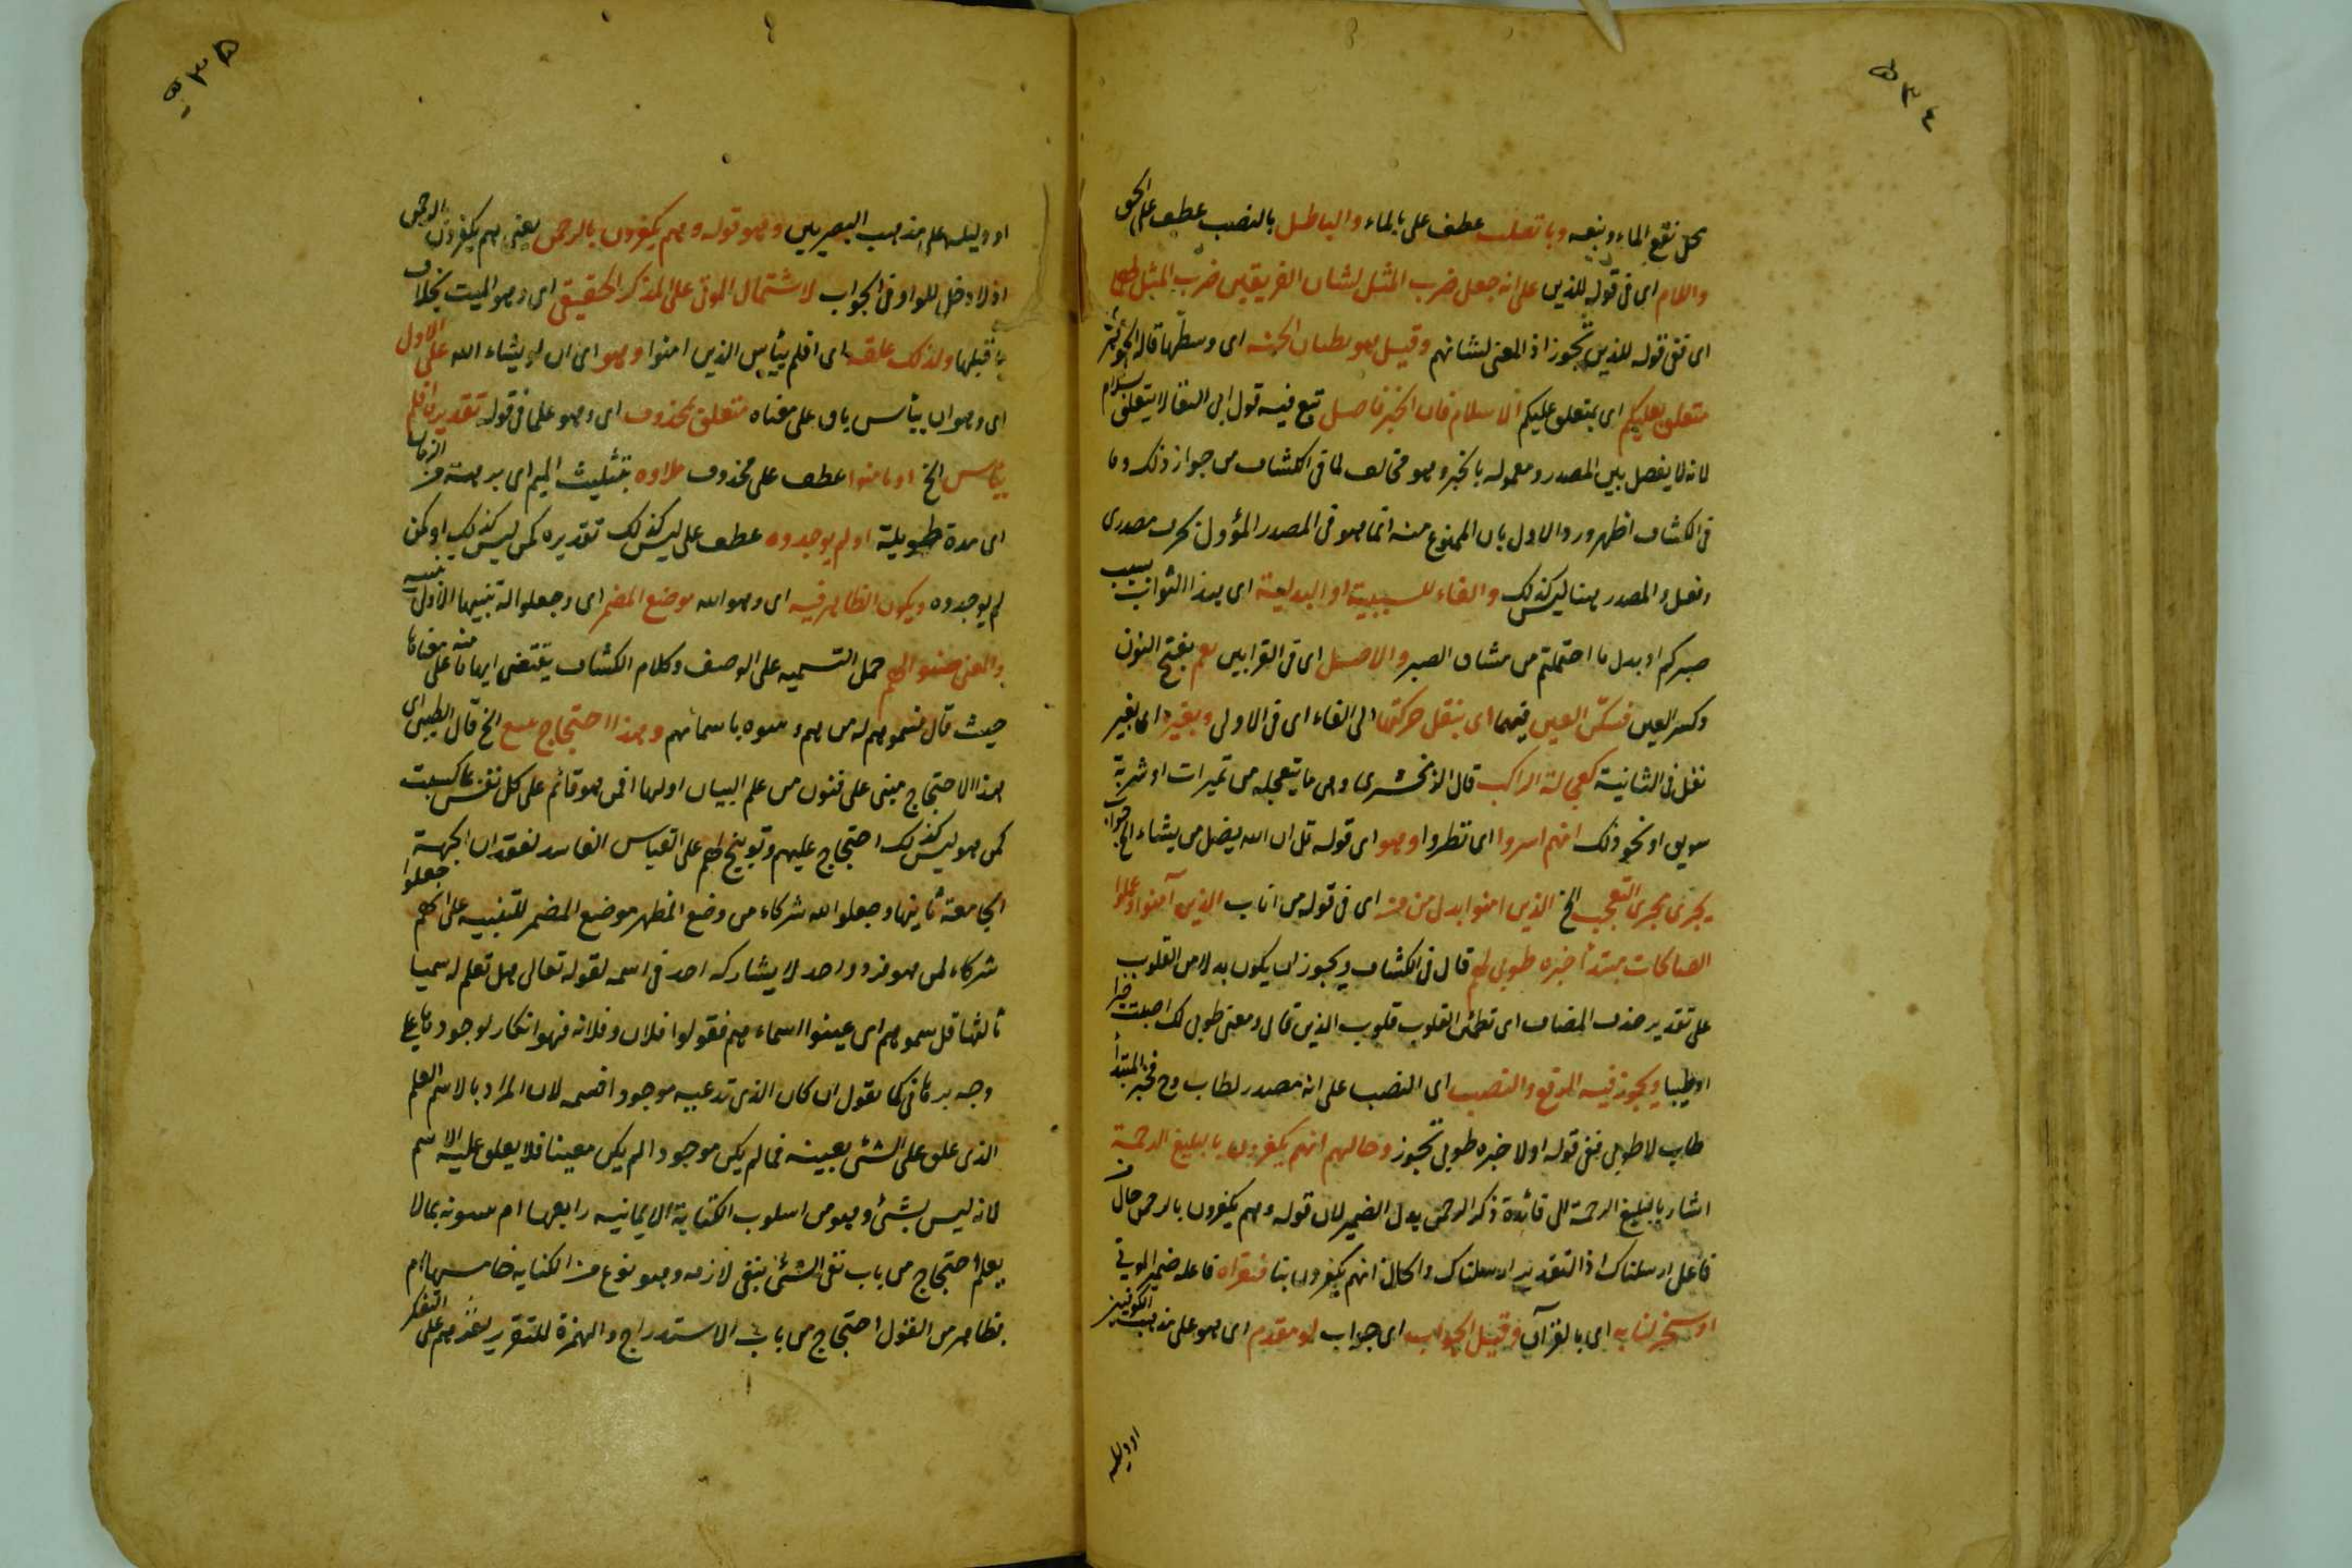 ٥٣٤
محل نقع الماء ومنبعه وبا تعلب عطف على بالماء والباطل بالنصب عطف على الحق
واللام اى فى قوله للذين على انه جعل ضرب المثل لشان الفريقين ضرب المثل لهم
اى ففى قوله للذين تجوز اذ المعنى لشانهم وقيل هو بطنان الجنة اى وسطها قاله
متعلق بعليكم اى بمتعلق عليكم لا سلام فان الخبر فاصل تبع فيه قول ابى البقا لا يتعلق بسلام
لانه لا يفصل بين المصدر ومعموله بالخبر وهو مخالف لما فى الكشاف من جواز ذلك وما
فى الكشاف اظهر ورد الاول بان الممنوع منه انما هو فى المصدر المؤول بحرف مصدرى
وفعل والمصدر هنا ليس كذلك والفاء للسببية او البدلية اى هذا الثواب بسبب
صبركم او بدل ما احتملتم من مشاق الصبر والاصل اى فى القرايين نعم بفتح النون
وكسر العين فسكن العين فيهما اى بنقل حركتها الى الفاء اى فى الاولى وبغيره اى بغير
نقل فى الثانية كعجالة الراكب قال الزمخشرى وهى ما يتعجله من تميرات او شربة
سويق او نحو ذلك انهم اسروا اى نظروا وهو اى قوله قل ان الله يضل من يشاء الخ جواب
يجرى مجرى التعجب الخ الذين امنوا بدل من من اى فى قوله من اناب الذين آمنوا وعملوا
الصالحات مبتدأ خبره طوبى لهم قال فى الكشاف ويجوز ان يكون بدلا من القلوب
على تقدير حذف المضاف اى تطمئن القلوب قلوب الذين قال ومعنى طوبى لك اصبت خيرا
او طيبا ويجوز فيه الرفع والنصب اى النصب على انه مصدر لطاب وح فخبر المبتدأ
طاب لا طوبى ففى قوله اولا خبره طوبى تجوز وحالهم انهم يكفرون بالبليغ الرحمة
اشار بالبليغ الرحمة الى فائدة ذكر الرحمن بدل الضمير لان قوله وهم يكفرون بالرحمن حال من
فاعل ارسلناك اذ التقدير ارسلناك والحال انهم يكفرون بنا فتقراه فاعله ضمير الموتى
او تسخر لنا به اى بالقرآن وقيل الجواب اى جواب لو مقدم اى هو على مذهب الكوفيين
او دليله
٥٣٥
او دليله على مذهب البصريين وهو قوله وهم يكفرون بالرحمن يعنى هم يكفرون بالرحمن
اذ لا دخل للواو فى الجواب لاشتمال الموتى على المذكر الحقيقى اى وهو الميت بخلاف
ما قبلها ولذلك علقه اى افلم ييأس الذين امنوا وهو اى ان لو يشاء الله على الاول
اى وهو ان ييأس باق على معناه متعلق بمحذوف اى وهو علما فى قوله تقديره افلم
ييأس الخ او بامنوا عطف على محذوف ملاوه بتثليث الميم اى برهة من الزمان
اى مدة طويلة او لم يوحدوه عطف على ليس كذلك تقديره كمن ليس كذلك او كمن
لم يوحدوه ويكون الظاهر فيه اى وهو الله موضع المضمر اى وجعلوا له
والمعنى صفوهم حمل التسميه على الوصف وكلام الكشاف يقتضى ابهامنه على معناها
حيث قال سموهم له من هم وسموه باسمائهم وهذا احتجاج بليغ الخ قال الطيبى اى
هذا الاحتجاج مبنى على فنون من علم البيان اولها افمن هو قائم على كل نفس بما كسبت
كمن هو ليس كذلك احتجاج عليهم وتوبيخ لهم على القياس الفاسد لفقدان الجهة
الجامعة ثانيها وجعلوا لله شركاء من وضع المظهر موضع المضمر للتنبيه على انهم جعلوا
شركاء لمن هو فرد واحد لا يشاركه احد فى اسمه لقوله تعالى هل تعلم له سميا
ثالثها قل سموهم اى عينوا اسماءهم فقولوا فلان وفلانه فهو انكار لوجودها على
وجه برهانى كما تقول ان كان الذى تدعيه موجودا فسمه لان المراد بالاسم العلم
الذى علق على الشئ بعينه فما لم يكن موجودا لم يكن معينا فلا يعلق عليه الاسم
لانه ليس بشئ وهو من اسلوب الكناية الايمانيه رابعها ام تنبئونه بما لا
يعلم احتجاج من باب نفى الشئ بنفى لازمه وهو نوع من الكنايه خامسها ام
بظاهر من القول احتجاج من باب الاستدراج والهمزة للتقرير لبعثهم على التفكر